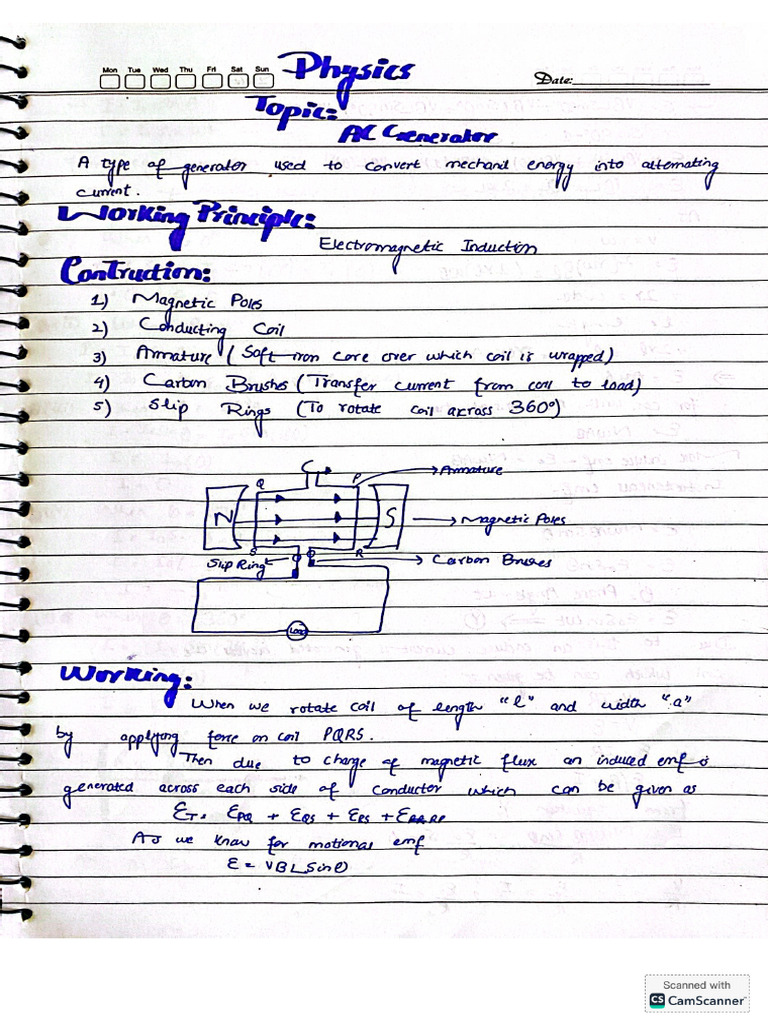 Mon Tue Wed Thu Fri Sat Sun
Physics
Date:
Topic:
AC Generator
A type of generator used to convert mechand energy into alternating
current.
Working Principle:
Electromagnetic Induction
Contruction:
1) Magnetic Poles
2) Conducting Coil
3) Armature (Soft-iron core over which coil is wrapped)
4) Carbon Brushes (Transfer current from coil to load)
5) Slip Rings (To rotate coil across 360°)
Armature
Q P
N S
Magnetic Poles
S R
Slip Ring
Carbon Brushes
Load
Working:
When we rotate coil of length "l" and width "a"
by applying force on coil PQRS.
Then due to change of magnetic flux an induced emf is
generated across each side of conductor which can be given as
ƐT = ƐPQ + ƐQS + ƐRS +
As we know for motional emf
Ɛ = VBLSinθ
Scanned with
CS CamScanner